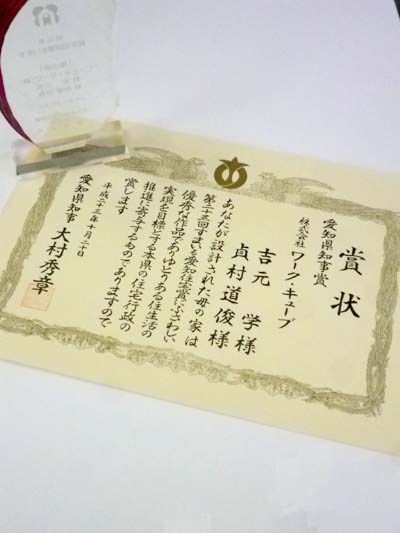 賞状
愛知県知事賞
株式会社 ワーク・キューブ
吉元 学様
貞村道俊様
あなたが設計された母の家は
第十三回すまいる愛知住宅賞にふさわしい
優秀な作品でありゆとりある住生活の
実現を目標とする本県の住宅行政の
推進に寄与するものでありますので
賞します
平成二十三年十月二十日
愛知県知事 大村秀章